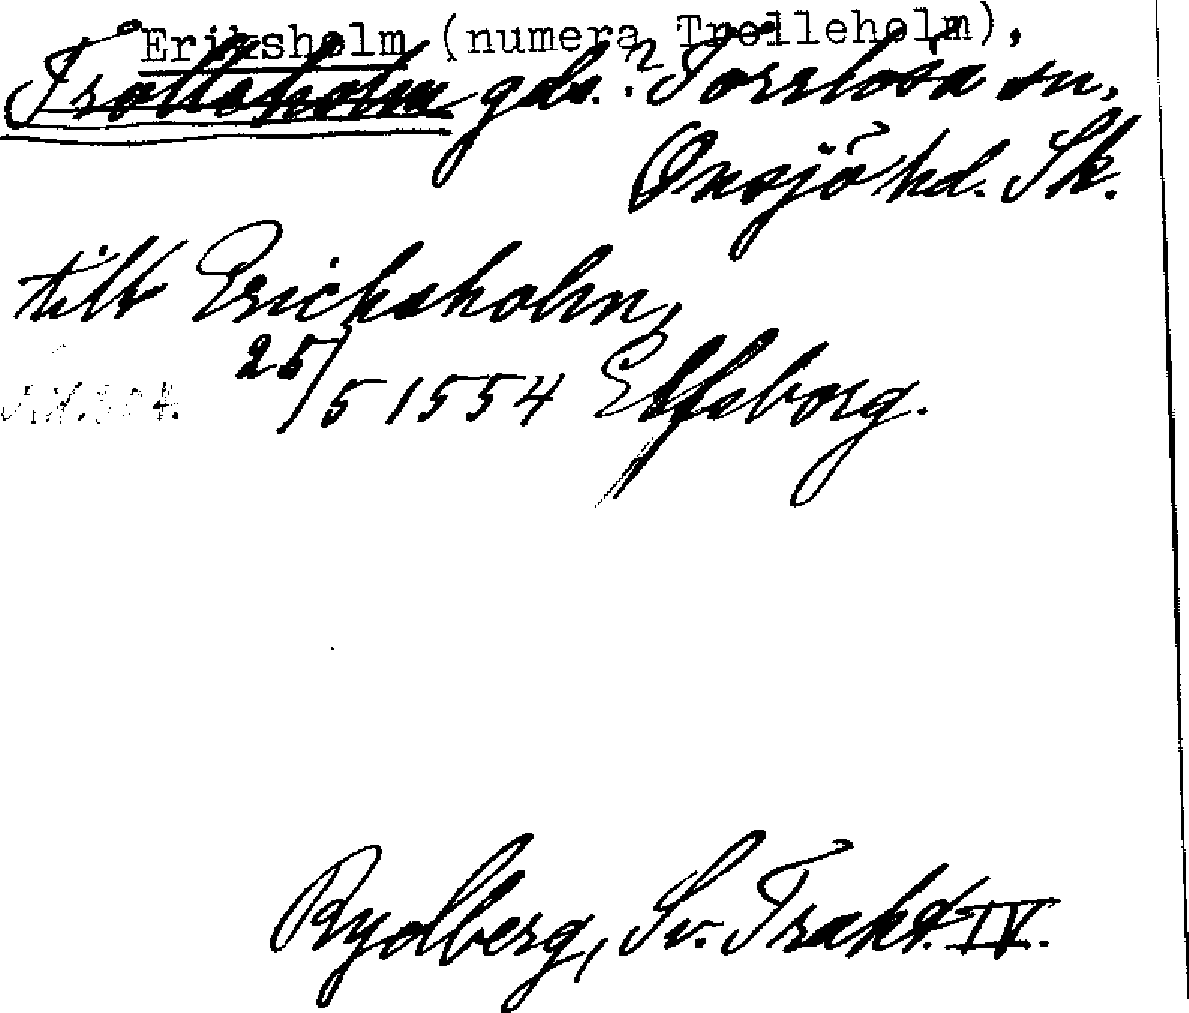 Eriksholm (numera Trolleholm),
Trolleholm gds.? Torrlösa sn,
Onsjö hd. Sk.
till Ericksholm,
25/5 1554 Elfsborg.
Rydberg, Sv. Trakt. IV.